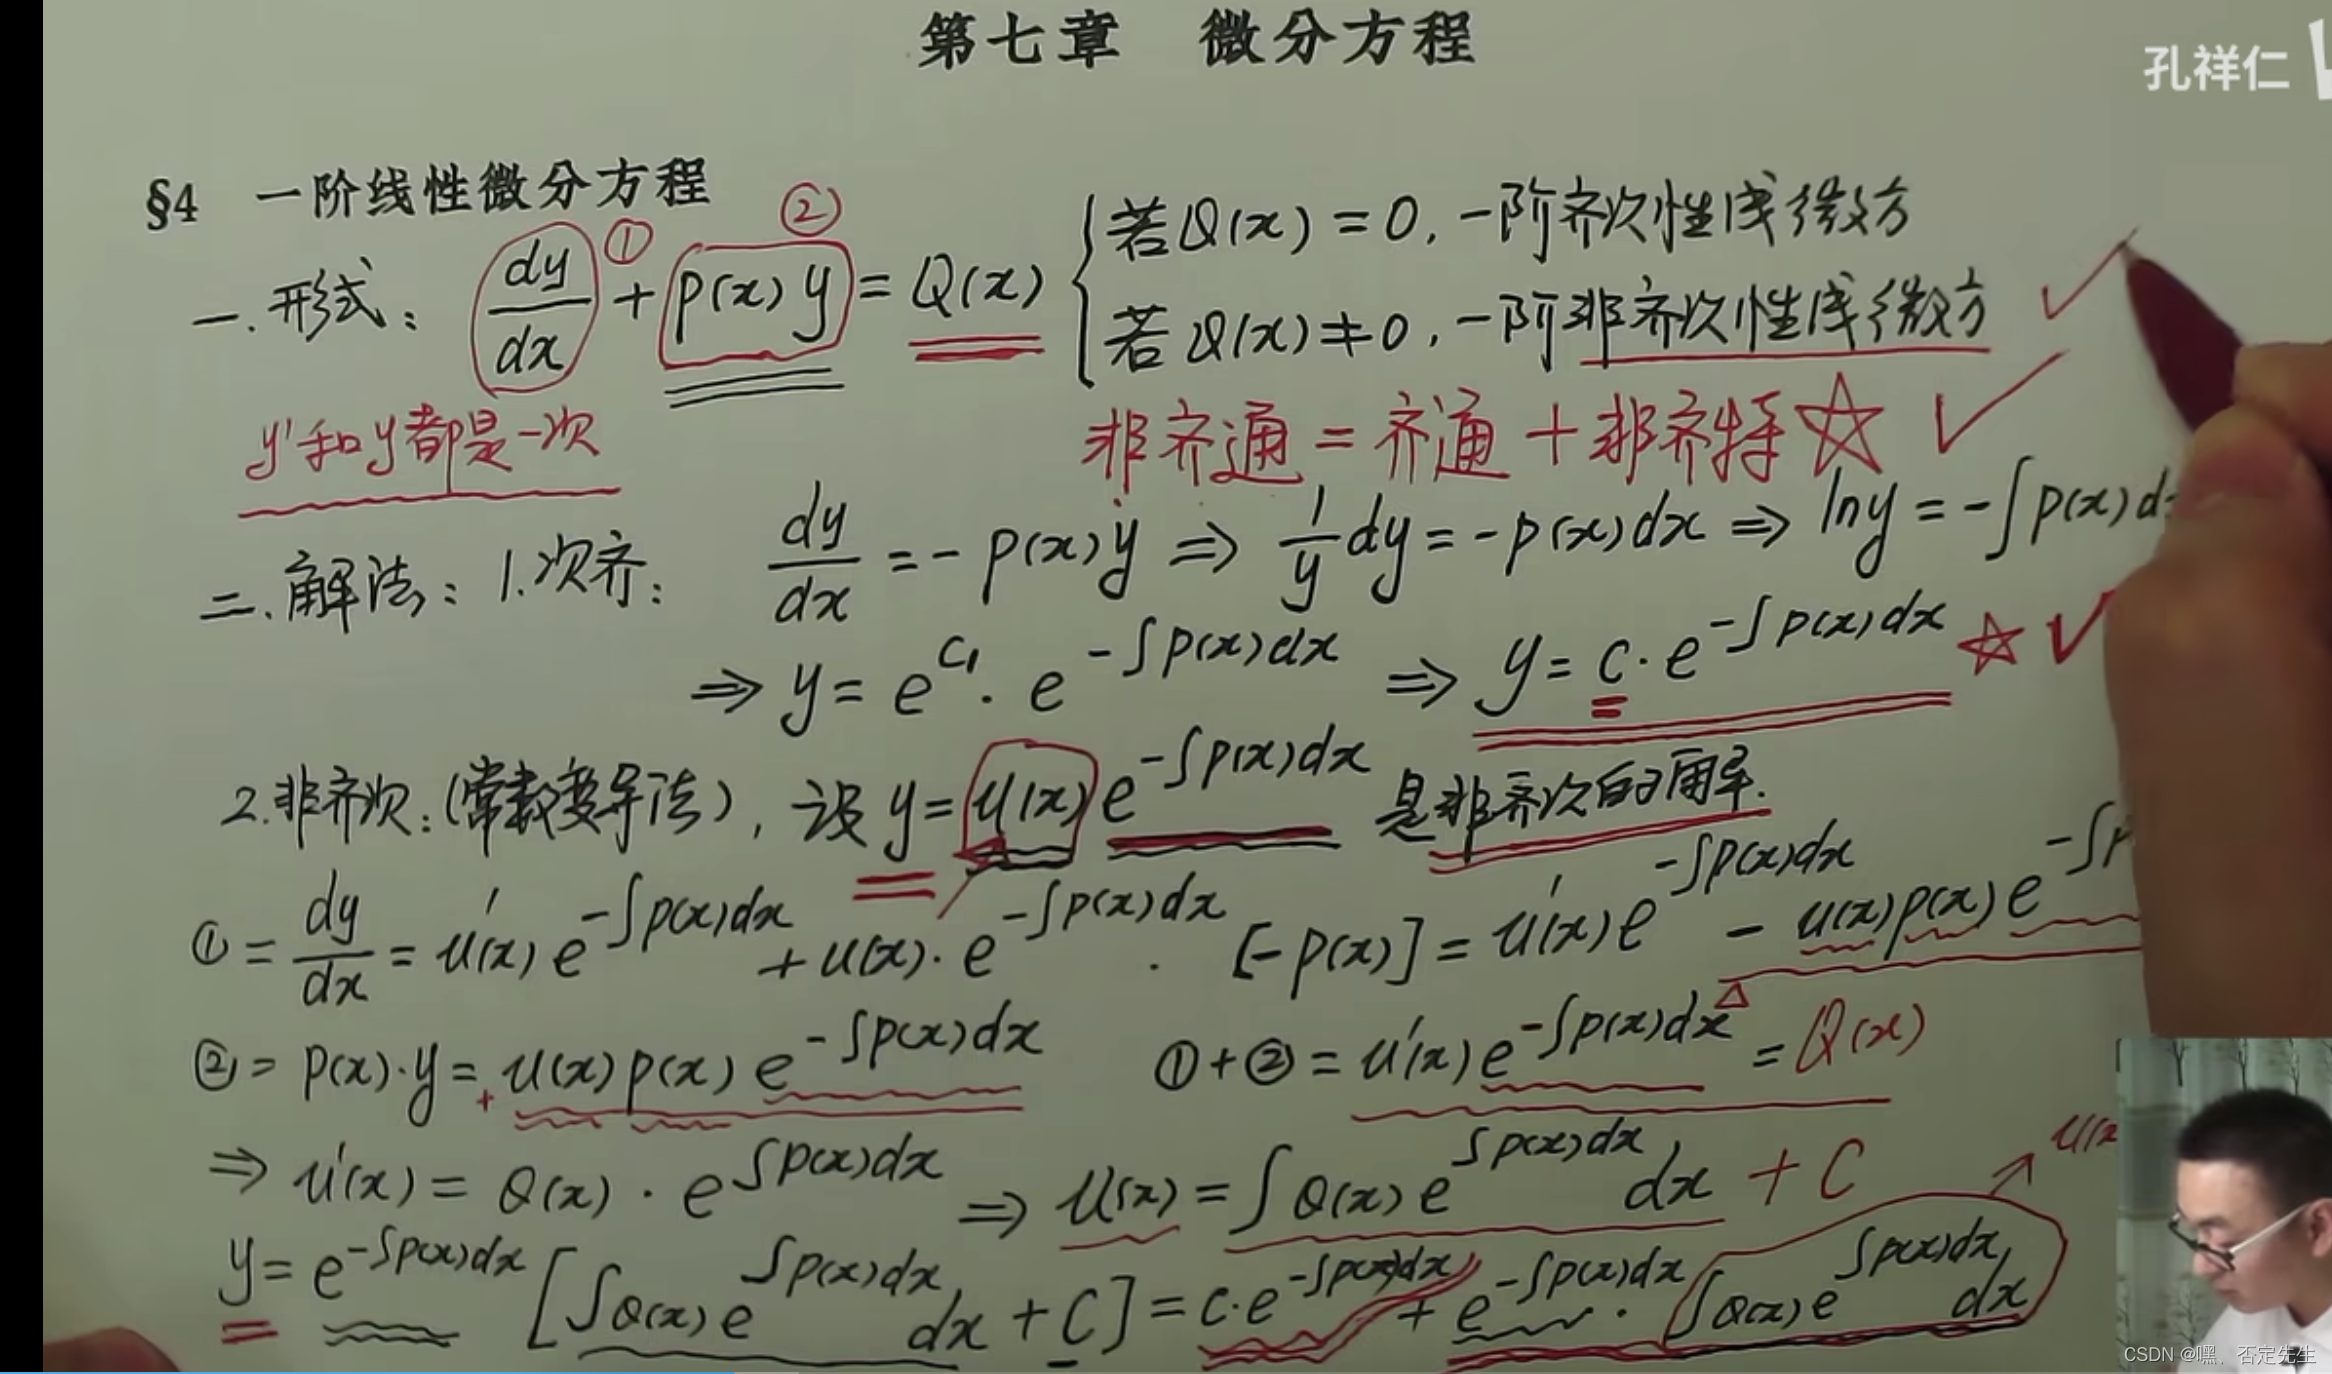 第七章 微分方程
孔祥仁
§4 一阶线性微分方程
一.形式: dy/dx ① + p(x)y ② = Q(x)
若Q(x)=0,一阶齐次性线微方
若Q(x)≠0,一阶非齐次性线微方
y'和y都是一次
非齐通=齐通+非齐特☆
二.解法:1.次齐: dy/dx = -p(x)y ⇒ 1/y dy = -p(x)dx ⇒ lny = -∫p(x)d
⇒ y = e^{C₁}·e^{-∫p(x)dx} ⇒ y = c·e^{-∫p(x)dx} ☆
2.非齐次:(常数变导法),设 y = u(x)e^{-∫p(x)dx} 是非齐次的解.
① = dy/dx = u'(x)e^{-∫p(x)dx} + u(x)·e^{-∫p(x)dx}·[-p(x)] = u'(x)e^{-∫p(x)dx} - u(x)p(x)e^{-∫p
② = p(x)·y = + u(x)p(x)e^{-∫p(x)dx} ①+② = u'(x)e^{-∫p(x)dx} = Q(x)
⇒ u'(x) = Q(x)·e^{∫p(x)dx} ⇒ u(x) = ∫Q(x)e^{∫p(x)dx}dx + C
u(x
y = e^{-∫p(x)dx}[∫Q(x)e^{∫p(x)dx}dx + C] = c·e^{-∫p(x)dx} + e^{-∫p(x)dx}·∫Q(x)e^{∫p(x)dx}dx
CSDN @嘿、否定先生